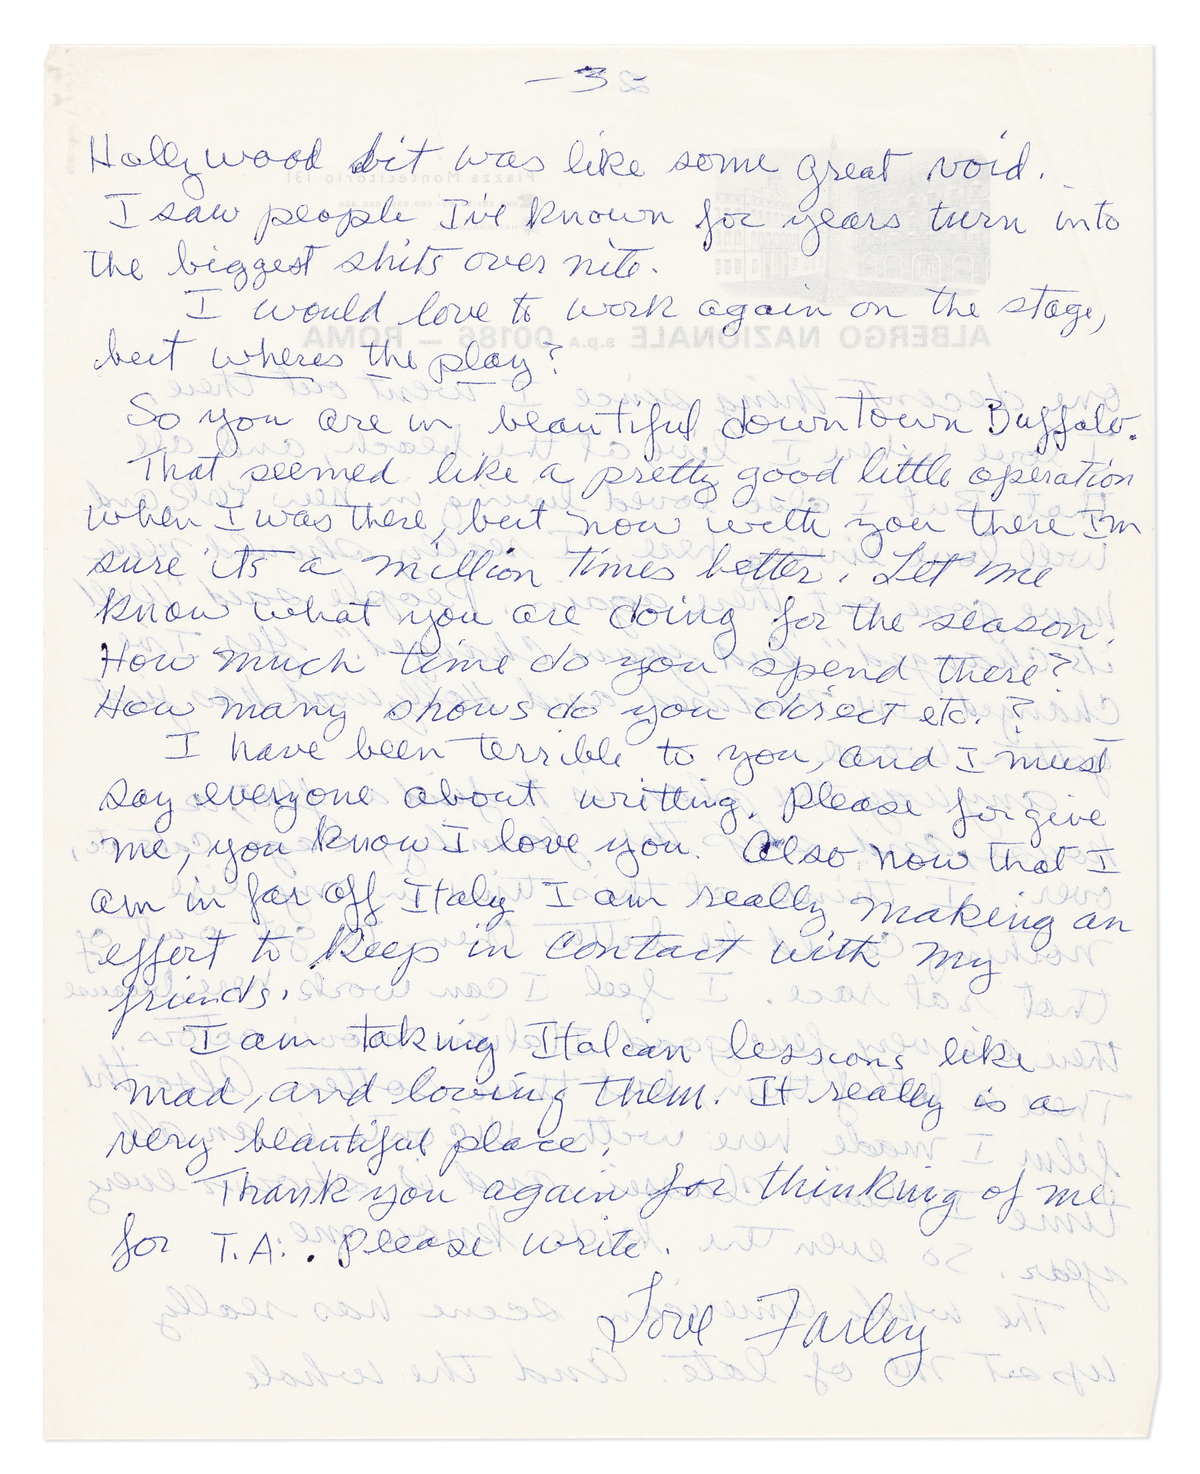 - 3 -
Hollywood bit was like some great void.
I saw people I've known for years turn into
the biggest shits over nite.
I would love to work again on the stage,
but wheres the play?
So you are in beautiful downtown Buffalo.
That seemed like a pretty good little operation
when I was there, but now with you there I'm
sure it's a million times better. Let me
know what you are doing for the season.
How much time do you spend there?
How many shows do you direct etc. ?
I have been terrible to you, and I must
say everyone about writting. Please forgive
me, you know I love you. Also now that I
am in far off Italy I am really making an
effort to keep in contact with my
friends.
I am taking Italian lessons like
mad, and loving them. It really is a
very beautiful place.
Thank you again for thinking of me
for T.A. . Please write.
Love Farley
ALBERGO NAZIONALE s.p.a. 00186 — ROMA
Piazza Montecitorio 131